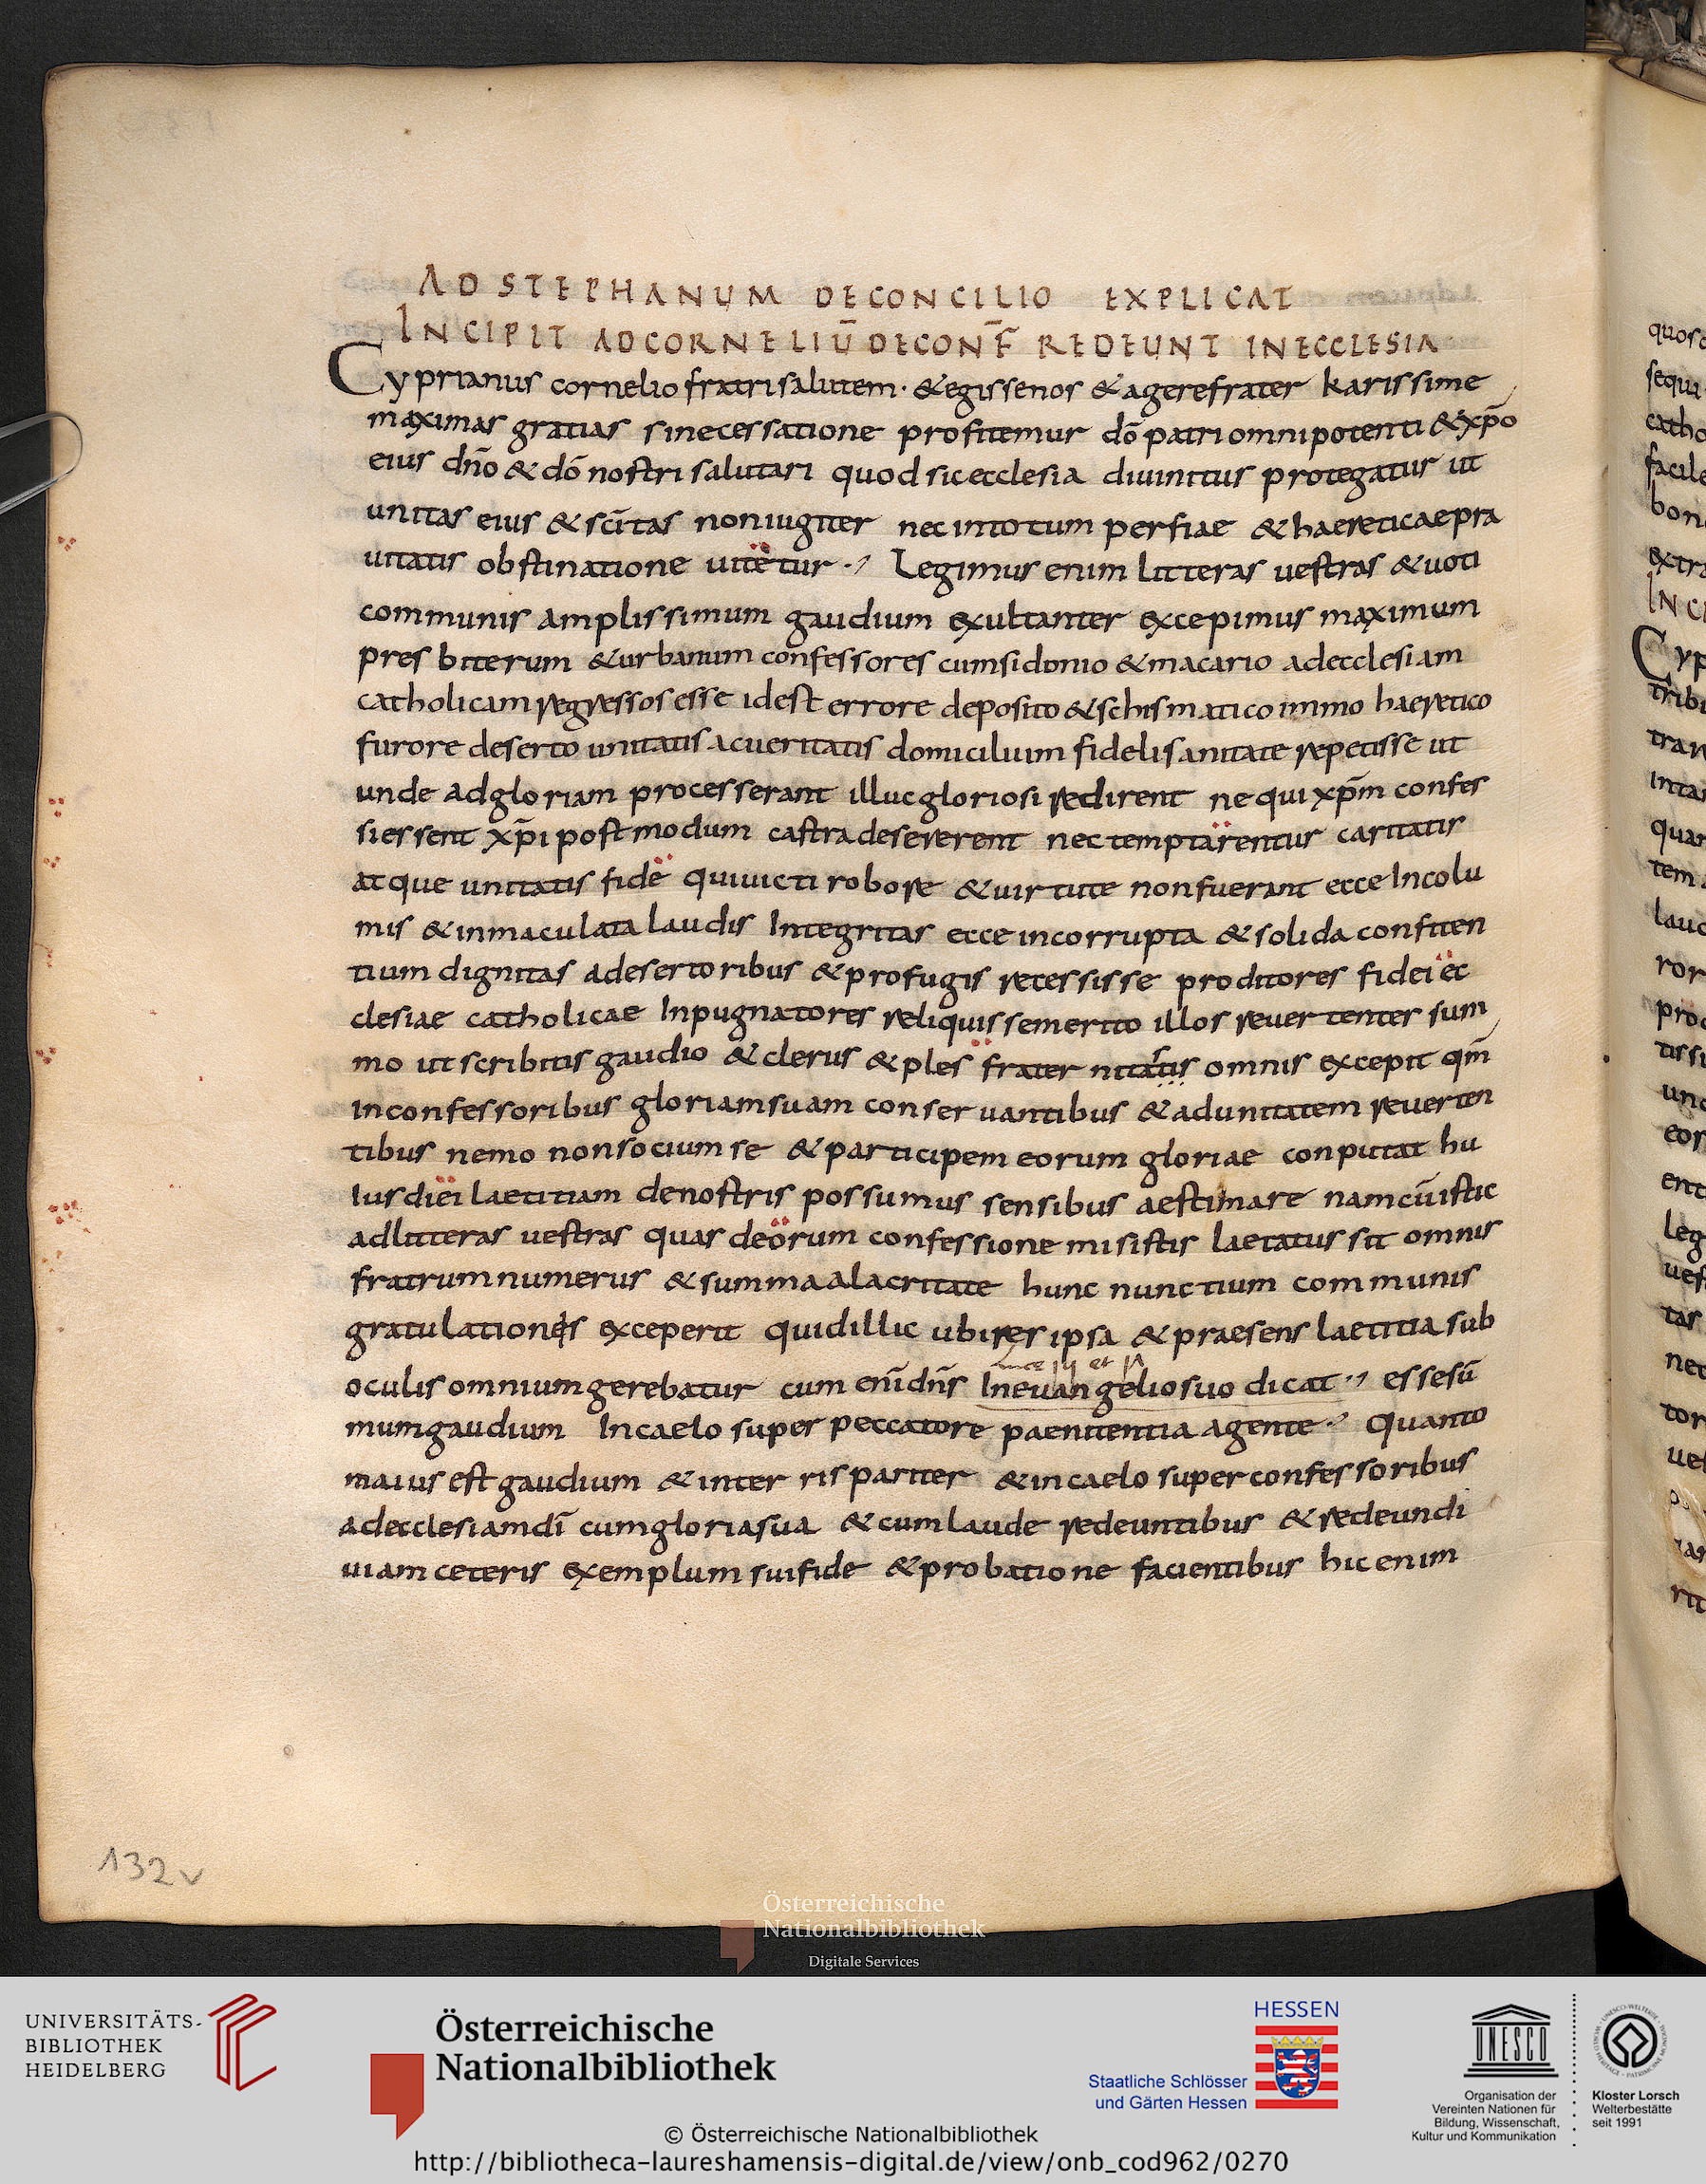 AD STEPHANUM DECONCILIO EXPLICAT
INCIPIT ADCORNELIŪ DECONF̄ REDEUNT INECCLESIA
Cyprianus cornelio fratri salutem · & egisse nos & agere frater karissime
maximas gratias sine cessatione profitemur dō patri omnipotenti & xp̄o
eius dn̄o & dō nostri salutari quod sic ecclesia diuinitus protegatur ut
unitas eius & sc̄itas non iugiter nec in totum perfiae & haereticae pra
uitatis obstinatione uitetur Legimus enim litteras uestras & uoti
communis amplissimum gaudium exultanter excepimus maximum
presbiterum & urbanum confessores cum sidonio & macario ad ecclesiam
catholicam regressos esse id est errore deposito & schismatico immo haeretico
furore deserto unitatis ac ueritatis domicilium fideli sanitate repetisse ut
unde ad gloriam processerant illuc gloriosi redirent ne qui xp̄m confes
si essent xp̄i postmodum castra desererent nec temptarentur caritatis
atque unitatis fide qui uicti robore & uirtute non fuerant ecce Incolu
mis & inmaculata laudis Integritas ecce incorrupta & solida confiten
tium dignitas a desertoribus & profugis recessisse proditores fidei ec
clesiae catholicae Inpugnatores reliquisse merito illos reuertenter sum
mo ut scribitis gaudio & clerus & ples frater nitatis omnis excepit qm̄
in confessoribus gloriam suam conseruantibus & ad unitatem reuerten
tibus nemo non socium se & participem eorum gloriae conputat hu
Ius diei laetitiam de nostris possumus sensibus aestimare nam cū istic
ad litteras uestras quas de orum confessione misistis laetatus sit omnis
fratrum numerus & summa alacritate hunc nunctium communis
gratulationes exceperit quid illic ubi res ipsa & praesens laetitia sub
oculis omnium gerebatur cum enī dn̄s In euangelio suo dicat esse sū
mum gaudium In caelo super peccatore paenitentia agente Quanto
maius est gaudium & in ter ris pariter & in caelo super confessoribus
ad ecclesiam dī cum gloria sua & cum laude redeuntibus & redeundi
uiam ceteris exemplum sui fide & probatione facientibus hic enim
132v
Österreichische
Nationalbibliothek
Digitale Services
UNIVERSITÄTS-
BIBLIOTHEK
HEIDELBERG
Österreichische
Nationalbibliothek
HESSEN
Staatliche Schlösser
und Gärten Hessen
UNESCO
Organisation der
Vereinten Nationen für
Bildung, Wissenschaft,
Kultur und Kommunikation
Kloster Lorsch
Welterbestätte
seit 1991
© Österreichische Nationalbibliothek
http://bibliotheca-laureshamensis-digital.de/view/onb_cod962/0270